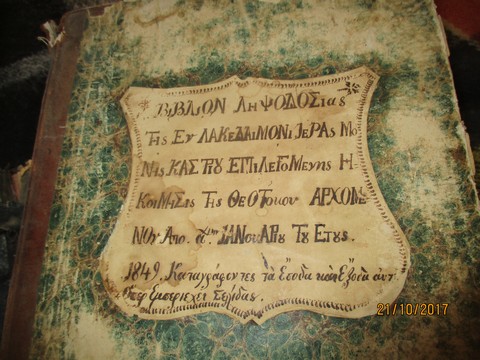 ΒΙΒΛΙΟΝ ΛΗΨΟΔΟΣίας
Τῆς ΕΝ ΛΑΚΕΔΑΙΜΟΝΙ ΙΕΡΑΣ Μο
Νῆς ΚΑΣΤΡΟΥ ΕΠΙΛΕΓΟΜΕνης Η
ΚΟΙΜΗΣΙΣ Τῆς ΘΕΟΤόκου ΑΡΧΟΜΕ
ΝΟΥ Απο ΙΑΝΟυΑΡΙΟΥ ΤΟΥ ΕΤΟΥΣ.
1849. Καταγράφοντες τὰ Ἔσοδα καὶ Ἔξοδα
Σελίδας.
21/10/2017